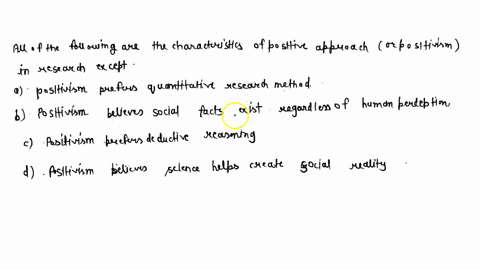 All of the following are the characteristics of positive approach (or positivism)
in research except.
a) positivism prefers quantitative research method.
b) Positivism believes social facts exist regardless of human perception
c) Positivism prefers deductive reasoning
d) Positivism believes science helps create social reality.